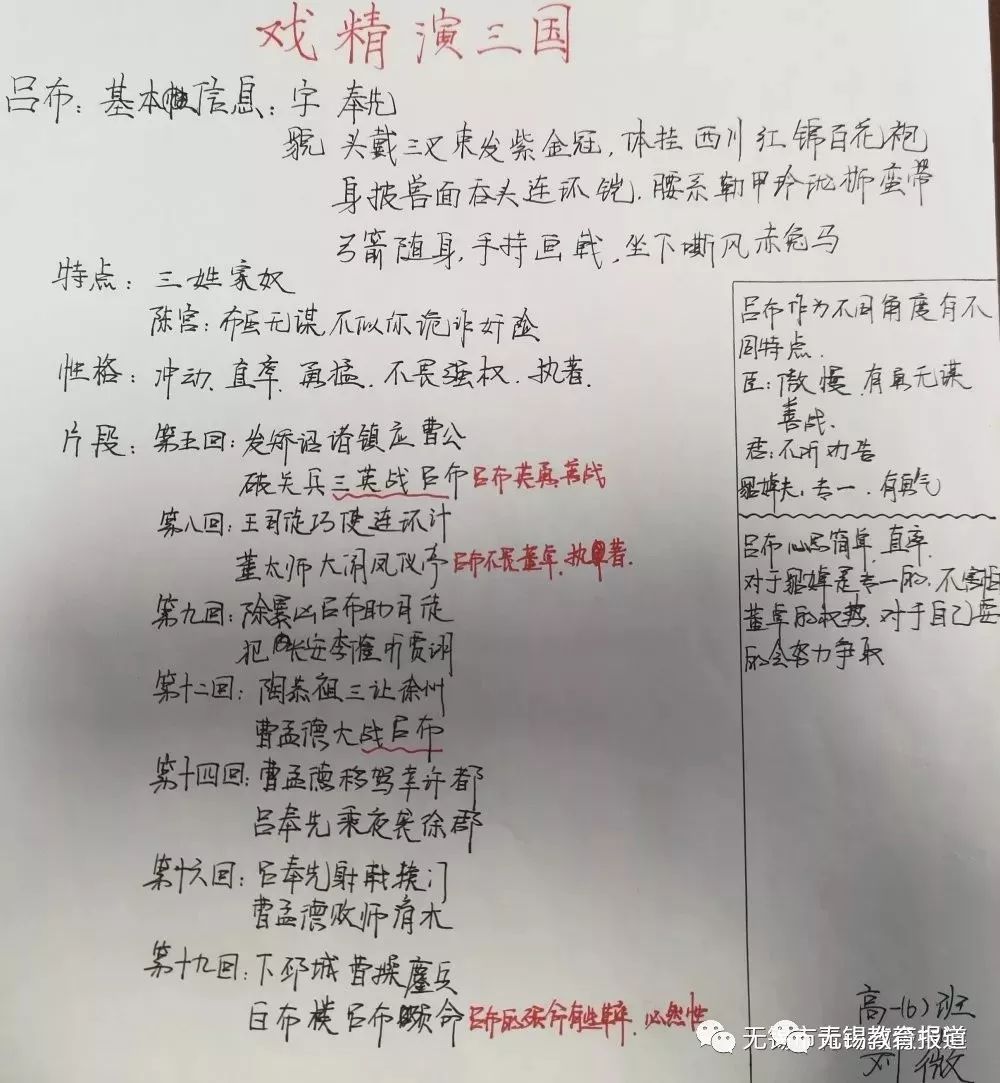 戏精演三国
吕布：基本信息：字 奉先
貌 头戴三叉束发紫金冠，体挂西川红锦百花袍
身披兽面吞头连环铠，腰系勒甲玲珑狮蛮带
弓箭随身，手持画戟，坐下嘶风赤兔马
特点：三姓家奴
陈宫：布虽无谋 不似你诡诈奸险
性格：冲动、直率、勇猛、不畏强权、执著.
片段：第五回：发矫诏诸镇应曹公
破关兵三英战吕布 吕布英勇善战
第八回：王司徒巧使连环计
董太师大闹凤仪亭 吕布不畏董卓、执著.
第九回：除暴凶吕布助司徒
犯长安李傕听贾诩
第十二回：陶恭祖三让徐州
曹孟德大战吕布
第十四回：曹孟德移驾幸许都
吕奉先乘夜袭徐郡
第十六回：吕奉先射戟辕门
曹孟德败师淯水
第十九回：下邳城曹操鏖兵
白布楼吕布殒命 必然性
吕布作为不同角度有不
同特点.
臣：傲慢、有勇无谋
善战.
君：不听劝告
专一、有勇气
吕布心思简单、直率.
对于貂婵是专一的、不害怕
董卓的权势、对于自己要
的会努力争取
高一(6)班
刘微
无锡市
无锡教育报道